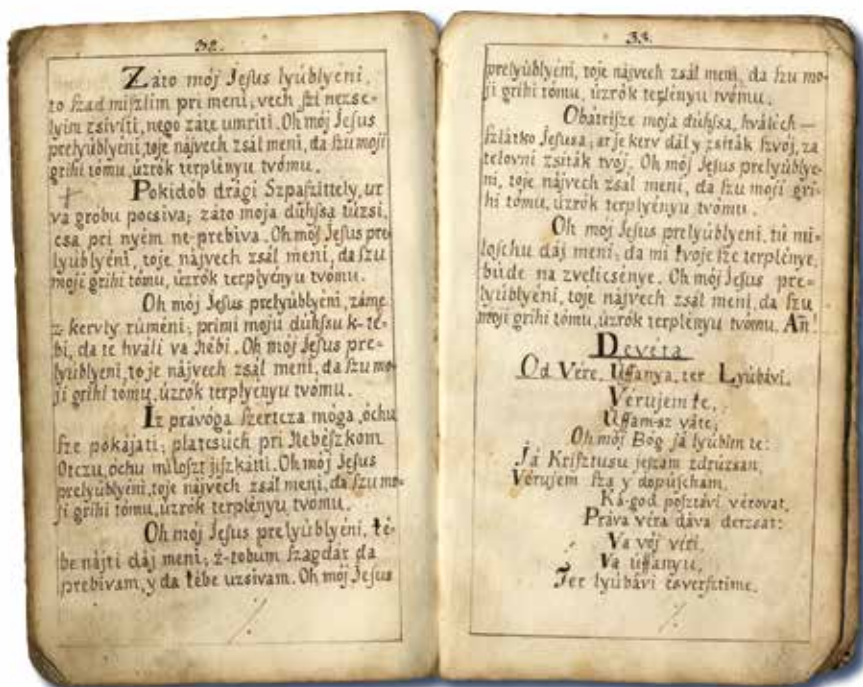 32.
Záto mój Jesus lyúblyéni,
to szad miszlim pri meni, vech szi nezse-
lyim zsivíti, nego záte umriti. Oh mój Jesus
prelyúblyéni, toje nájvech zsál meni, da szu moji
gríhi tomu, úzrók terplényu tvómu.
Pokidob drági Szpaszittely, ur
va grobu pocsiva; záto moja dúhssa túzsi,
csa pri nyém ne-prebiva. Oh mój Jesus pre-
lyúblyéni, toje nájvech zsál meni, da szu
moji gríhi tómu, úzrók terplyényu tvómu.
Oh mój Jesus prelyúblyéni, záme
z-kervly rúmeni; primi moju dúhssu k-té-
bi, da te hváli va Nébi. Oh mój Jesus pre-
lyúblyeni, toje nájvech zsál meni, da szu mo-
ji gríhi tomu, úzrók terplyényu tvómu.
Iz právóga szertcza móga, óchu
sze pokájati; platesúch pri Nebészkom
Otczu, óchu miloszt jiszkátti. Oh mój Jesus
prelyúblyéni, toje nájvech zsál meni, da szu mo-
ji gríhi tómu, úzrók terplyényu tvómu.
Oh mój Jesus prelyúblyéni, té-
be nájti dáj meni; z-tobum szagdár da
prebivam, y da tébe uzsivam. Oh mój Jesus
33.
prelyúblyéni, toje nájvech zsál meni, da szu mo-
ji gríhi tómu, úzrók terplényu tvómu.
Obátrisze moja dúhssa, hválech-
szlátko Jesusa; ar je kerv dál y zsiták szvój, za
telovni zsiták tvój. Oh mój Jesus prelyúblye-
ni, toje nájvech zsál meni, da szu moji grí-
hi tómu, úzrók terplényu tvómu.
Oh mój Jesus prelyúblyeni, tú mi-
loschu dáj meni; da mi tvoje sze terplénye,
búde na zvelicsénye. Oh mój Jesus pre-
lyúblyéni, toje nájvech zsál meni, da szu
moji gríhi tómu, úzrók terplényu tvómu. Añ!
Devéta
Od Vére, Uffanya, ter Lyúbávi.
Vérujem te,
Uffam-sz váte;
Oh mój Bog já lyúblm te:
Já Krisztusu jeszam zdrúzsan,
Vérujem sza y dopúscham,
Ká-god posztávi vérovat,
Práva véra dáva derzsat:
Va vój véri,
Va Uffanyu,
Ter lyúbávi